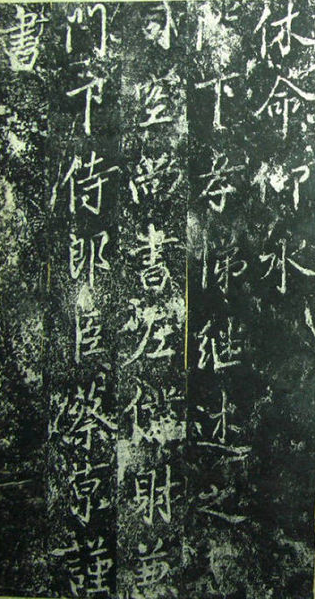 休命仰承
陛下孝悌繼述之志
司空尚書左僕射兼
門下侍郎臣蔡京謹
書